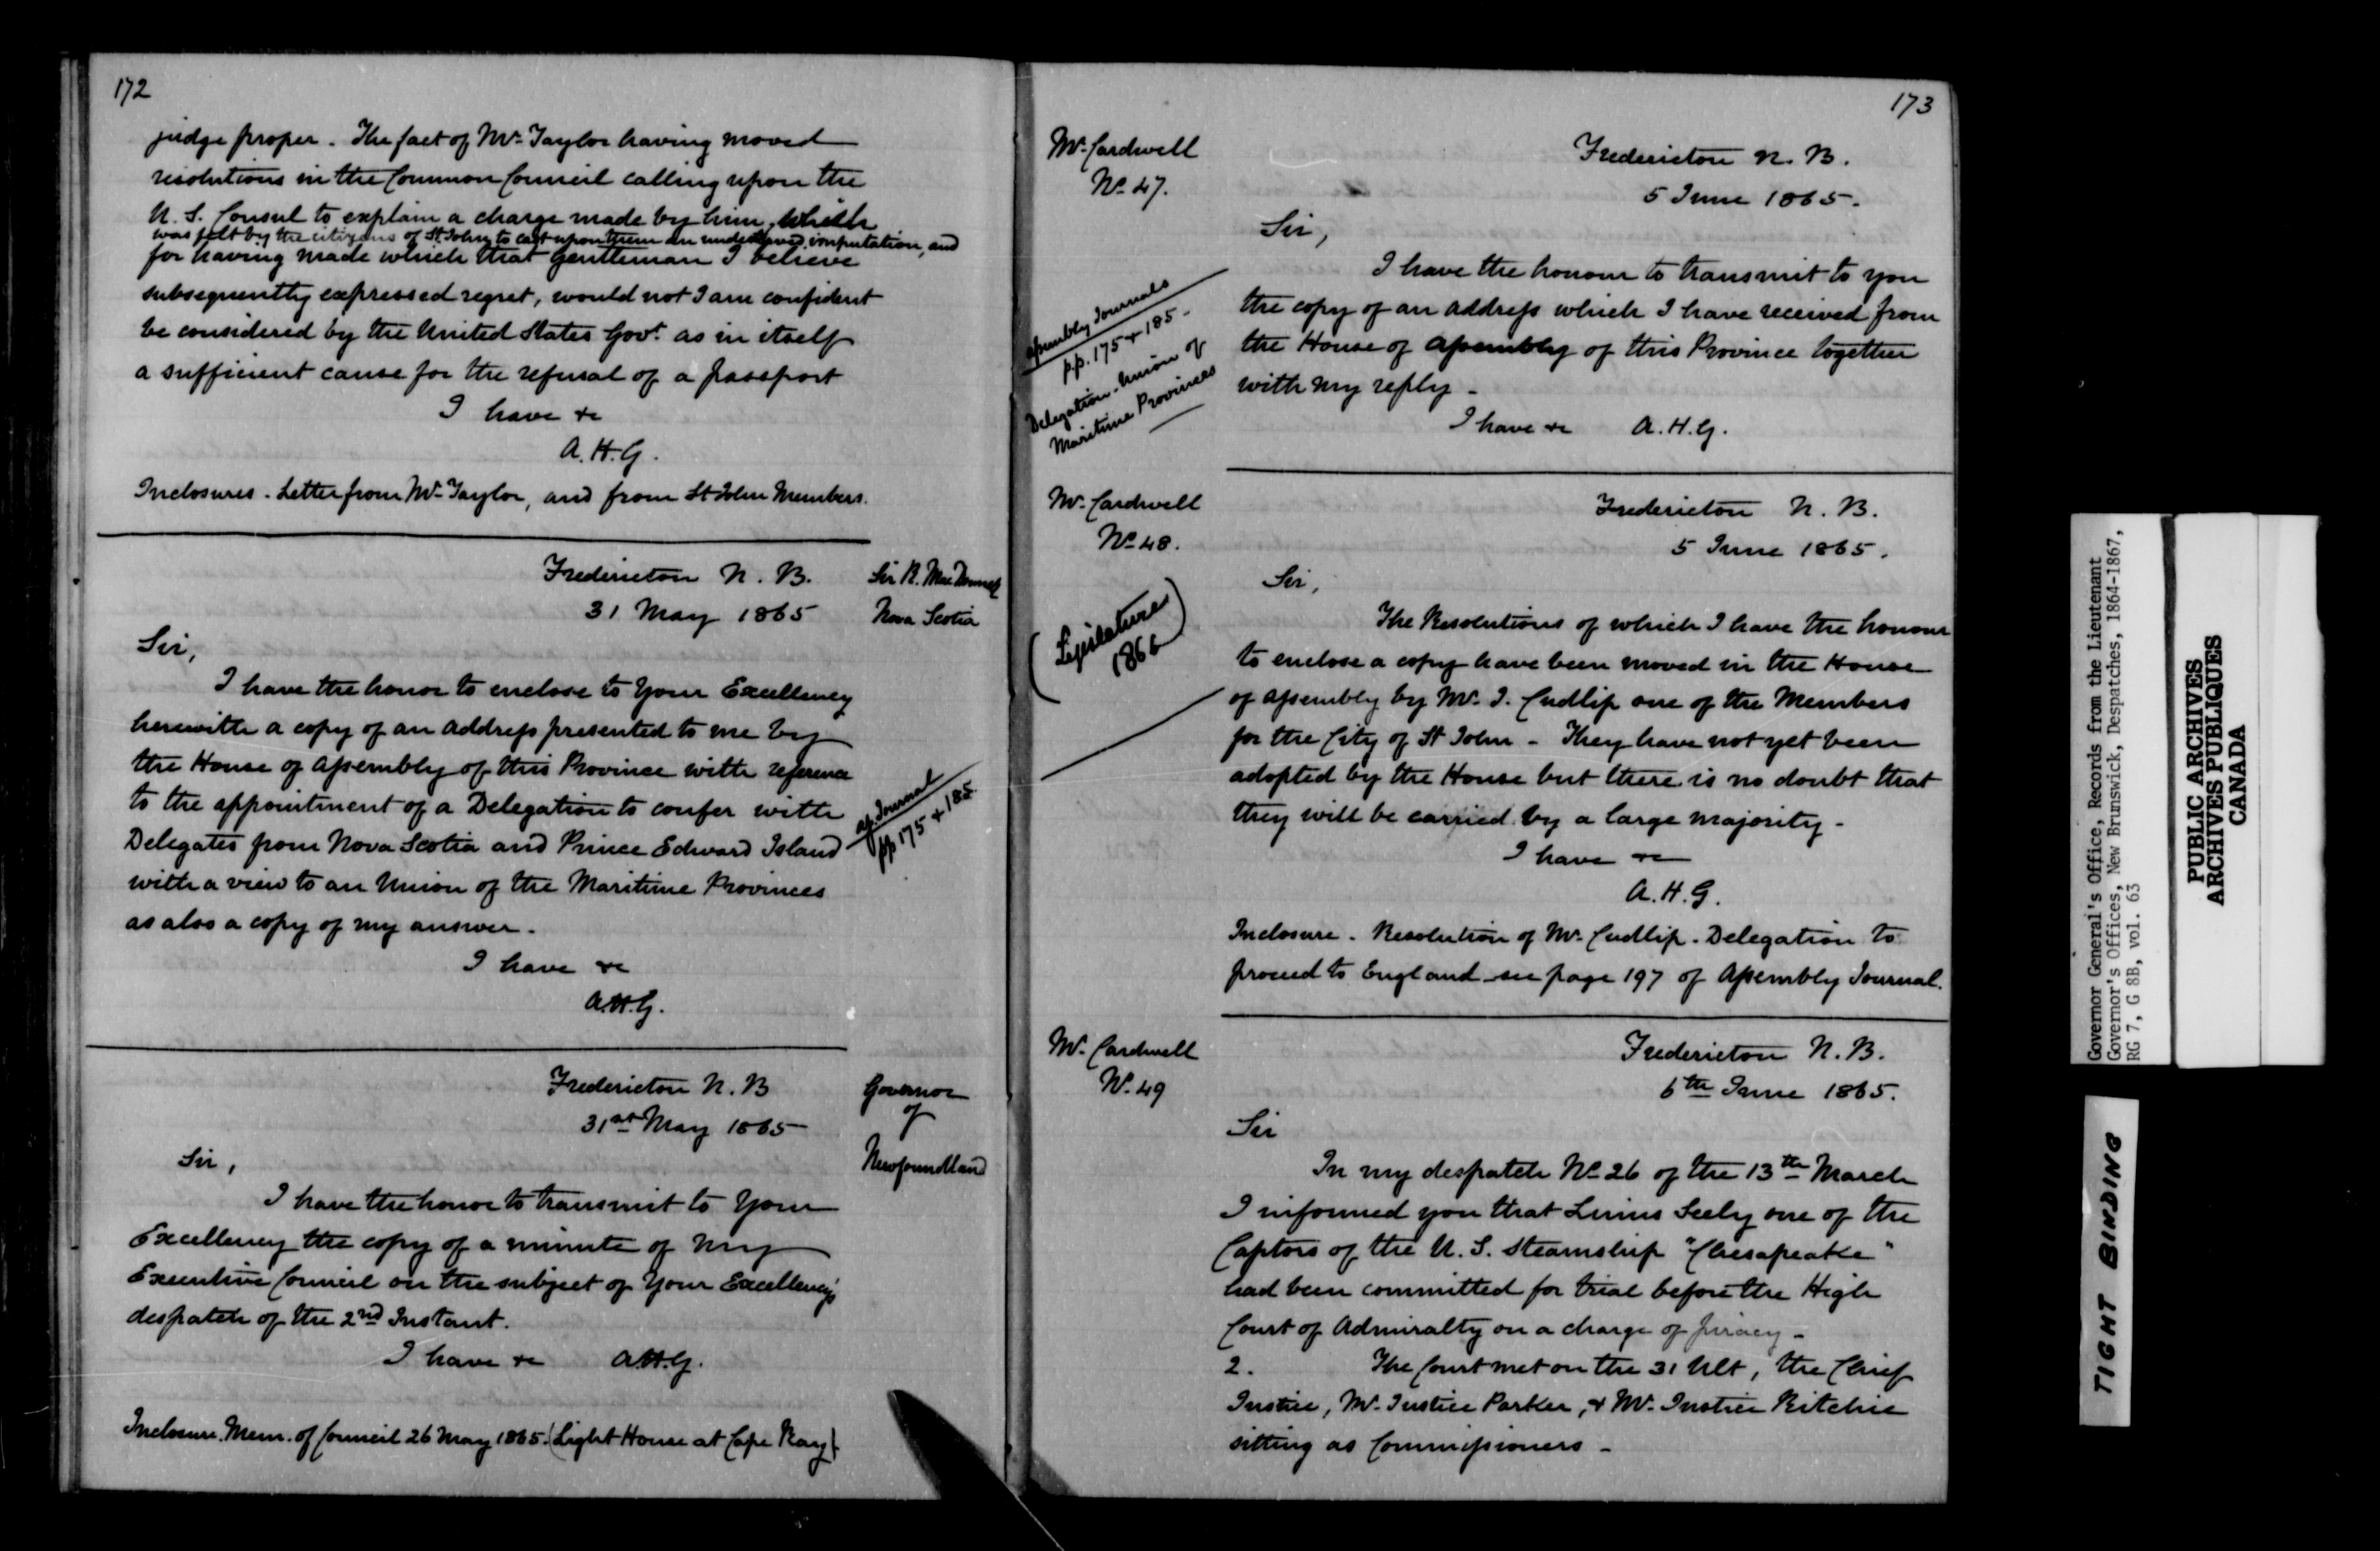 172
judge proper. The fact of Mr. Taylor having moved
resolutions in the Common Council calling upon the
U. S. Consul to explain a charge made by him, which
was felt by the citizens of St John to cast upon them an undeserved imputation, and
for having made which that gentleman I believe
subsequently expressed regret, would not I am confident
be considered by the United States Govt. as in itself
a sufficient cause for the refusal of a passport
I have &c
A. H. G.
Inclosures. Letter from Mr. Taylor, and from St John Members.
Fredericton N. B.
31 May 1865
Sir R. MacDonnell
Nova Scotia
Sir,
I have the honor to enclose to Your Excellency
herewith a copy of an address presented to me by
the House of Assembly of this Province with reference
to the appointment of a Delegation to confer with
Delegates from Nova Scotia and Prince Edward Island
with a view to an Union of the Maritime Provinces
as also a copy of my answer.
As. Journal
pp 175 & 185
I have &c
A.H.G.
Fredericton N. B
31st May 1865
Governor
of
Newfoundland
Sir,
I have the honor to transmit to Your
Excellency the copy of a minute of my
Executive Council on the subject of Your Excellency's
despatch of the 2nd Instant.
I have &c A.H.G.
Inclosure. Mem. of Council 26 May 1865. (Light House at Cape Ray)
173
Mr. Cardwell
No 47.
Fredericton N. B.
5 June 1865.
Sir,
I have the honour to transmit to you
the copy of an address which I have received from
the House of Assembly of this Province together
with my reply -
Assembly Journals
pp. 175 & 185 -
Delegation - Union of
Maritime Provinces
I have &c A. H. G.
Mr. Cardwell
No 48.
Fredericton N. B.
5 June 1865.
Sir,
(Legislatures)
1866
The Resolutions of which I have the honour
to enclose a copy have been moved in the House
of Assembly by Mr. J. Cudlip one of the Members
for the City of St John - They have not yet been
adopted by the House but there is no doubt that
they will be carried by a large majority -
I have &c
A. H. G.
Inclosure. Resolution of Mr. Cudlip. Delegation to
proceed to England see page 197 of Assembly Journal.
Mr. Cardwell
No. 49
Fredericton N. B.
6th June 1865.
Sir
In my despatch No 26 of the 13th March
I informed you that Linus Seely one of the
Captors of the U. S. Steamship "Chesapeake"
had been committed for trial before the High
Court of Admiralty on a charge of piracy -
2. The Court met on the 31 Ult, the Chief
Justice, Mr. Justice Parker, & Mr. Justice Ritchie
sitting as Commissioners -
Governor General's Office, Records from the Lieutenant
Governor's Offices, New Brunswick, Despatches, 1864-1867,
RG 7, G 8B, vol. 63
PUBLIC ARCHIVES
ARCHIVES PUBLIQUES
CANADA
TIGHT BINDING